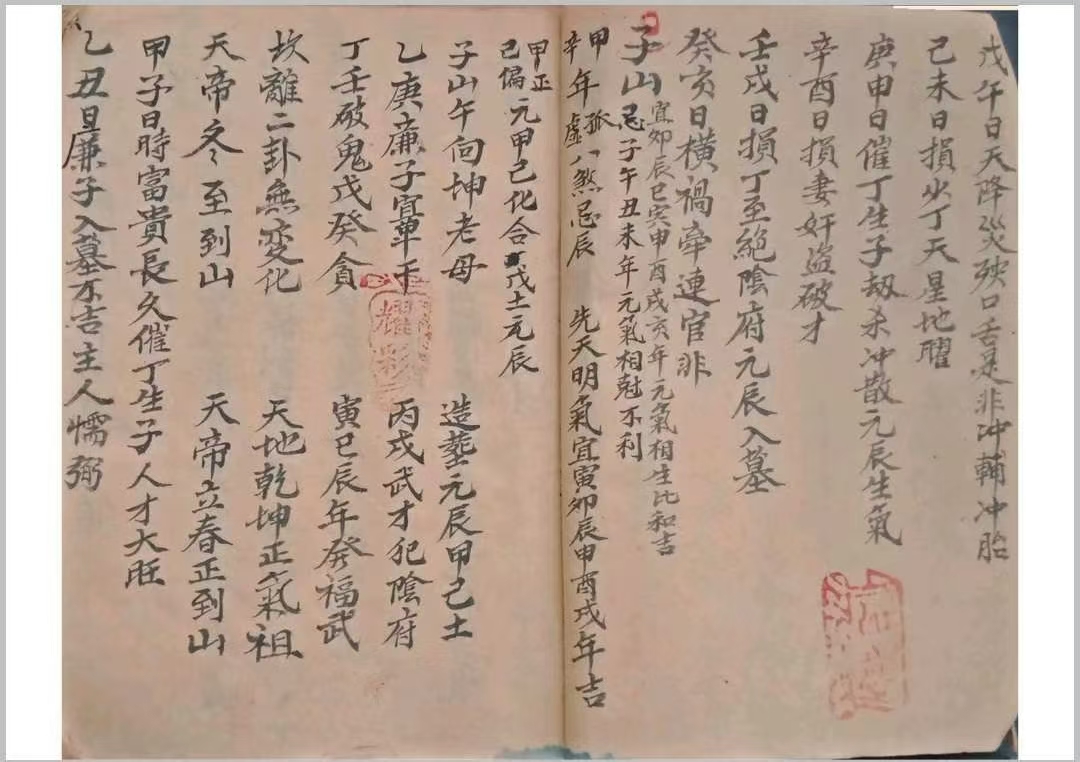 戊午日天降災殃口舌是非冲輔冲胎
己未日損少丁天星地曜
庚申日催丁生子劫杀冲散元辰生氣
辛酉日損妻奸盜破才
壬戌日損丁至絕陰府元辰入墓
癸亥日横禍牽連官非
子山宜卯辰巳寅申酉戌亥年元氣相生比和吉
忌子午丑未年元氣相尅不利
甲辛年孤虛八煞忌辰 先天明氣宜寅卯辰申酉戌年吉
甲正己偏元甲己化合戊土元辰
子山午向坤老母 造塟元辰甲己土
乙庚廉子宜單于 丙戌武才犯陰府
丁壬破鬼戊癸貪 寅巳辰年發福武
坎離二卦無变化 天地乾坤正氣祖
天帝冬至到山 天帝立春正到山
甲子日時富貴長久催丁生子人才大旺
乙丑日廉子入墓不吉主人懦弱